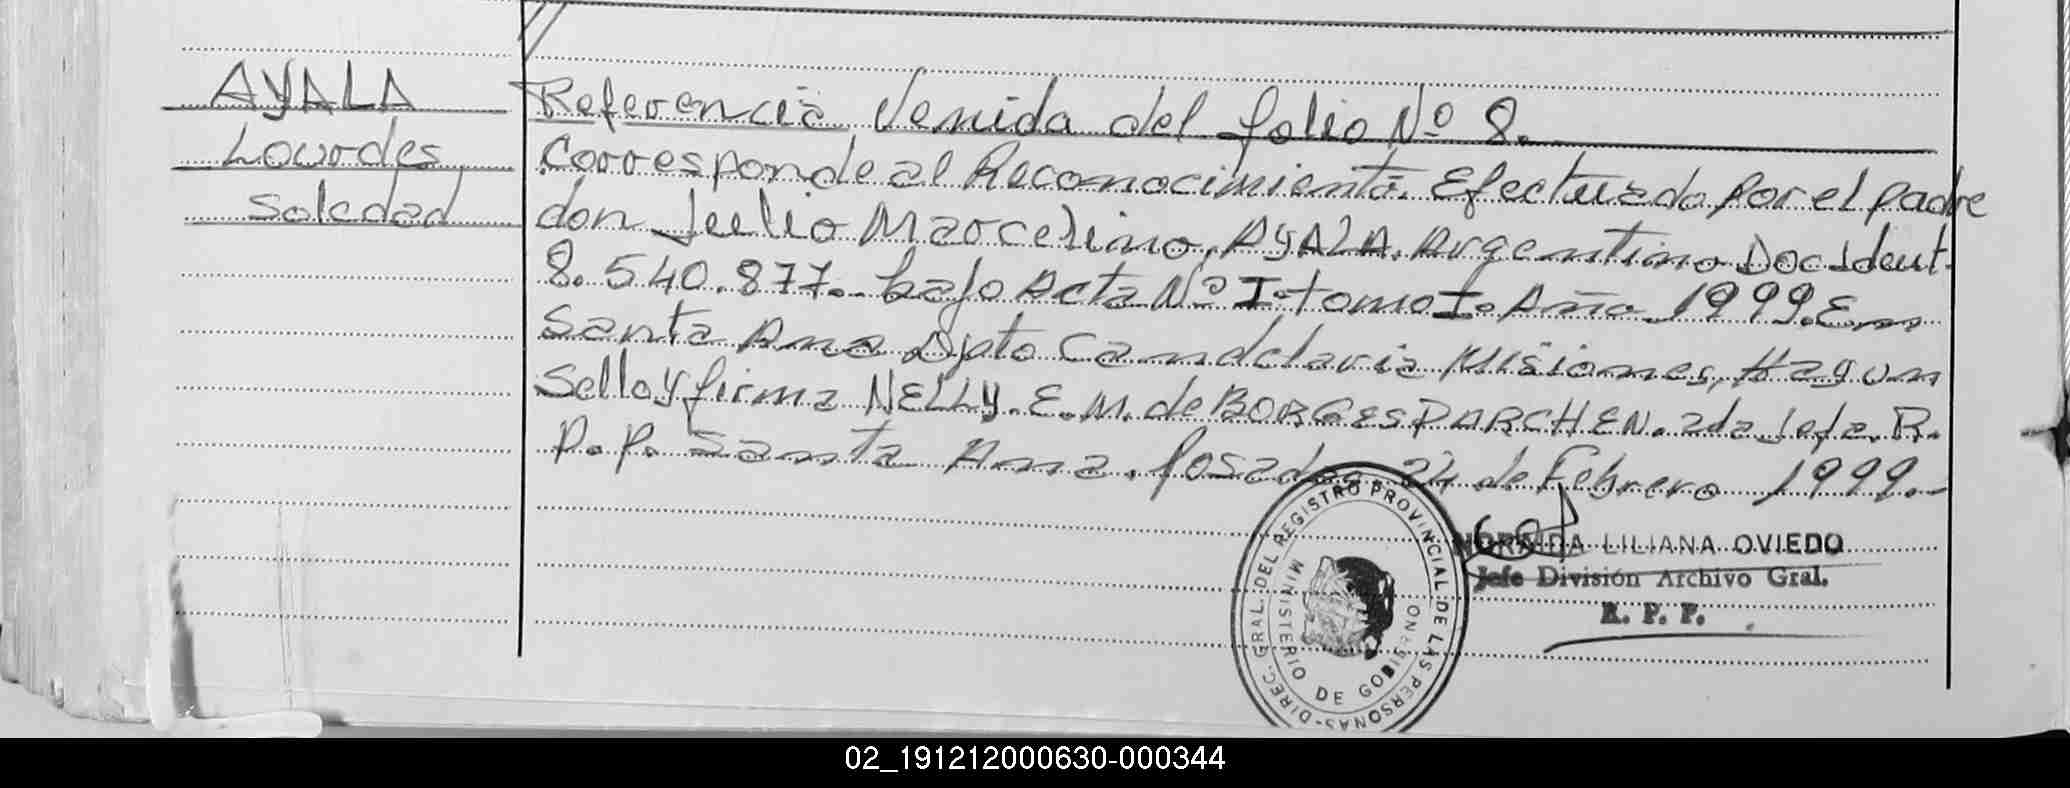 AYALA
Lourdes
Soledad
Referencia Venida del folio Nº 8.
Corresponde al Reconocimiento. Efectuado por el padre
don Julio Marcelino, AYALA. Argentino Doc Ident.
8.540.877. bajo Acta Nº I. tomo I. Año 1999. En
Santa Ana Dpto Candelaria Misiones, Hay un
Sello y firma NELLY. E. M. de BORGES PARCHEN. 2da Jefa. R.
P. P. Santa Ana. Posadas 24 de Febrero 1999.-
NORAIDA LILIANA OVIEDO
Jefe División Archivo Gral.
R. P. P.
DIREC. GRAL. DEL REGISTRO PROVINCIAL DE LAS PERSONAS-
MINISTERIO DE GOBIERNO
02_191212000630-000344